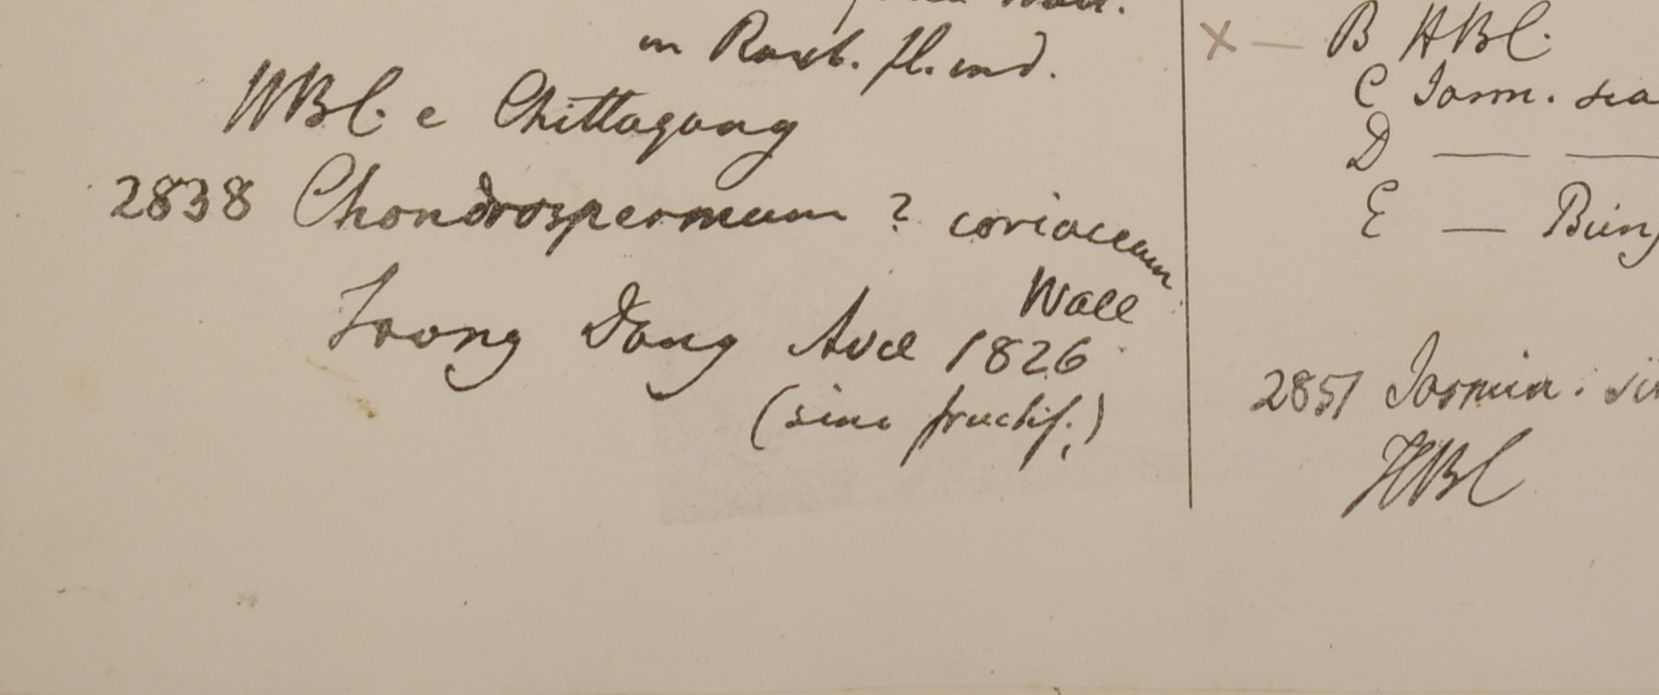 in Roxb. fl. ind.
HBC. e Chittagong
2838 Chondrospermum ? coriaceum
Wall
Trong Dong Ava 1826
(sine fructif.)
B HBC.
C Jasm.
D — —
E —
2851 Jasmin.
HBC